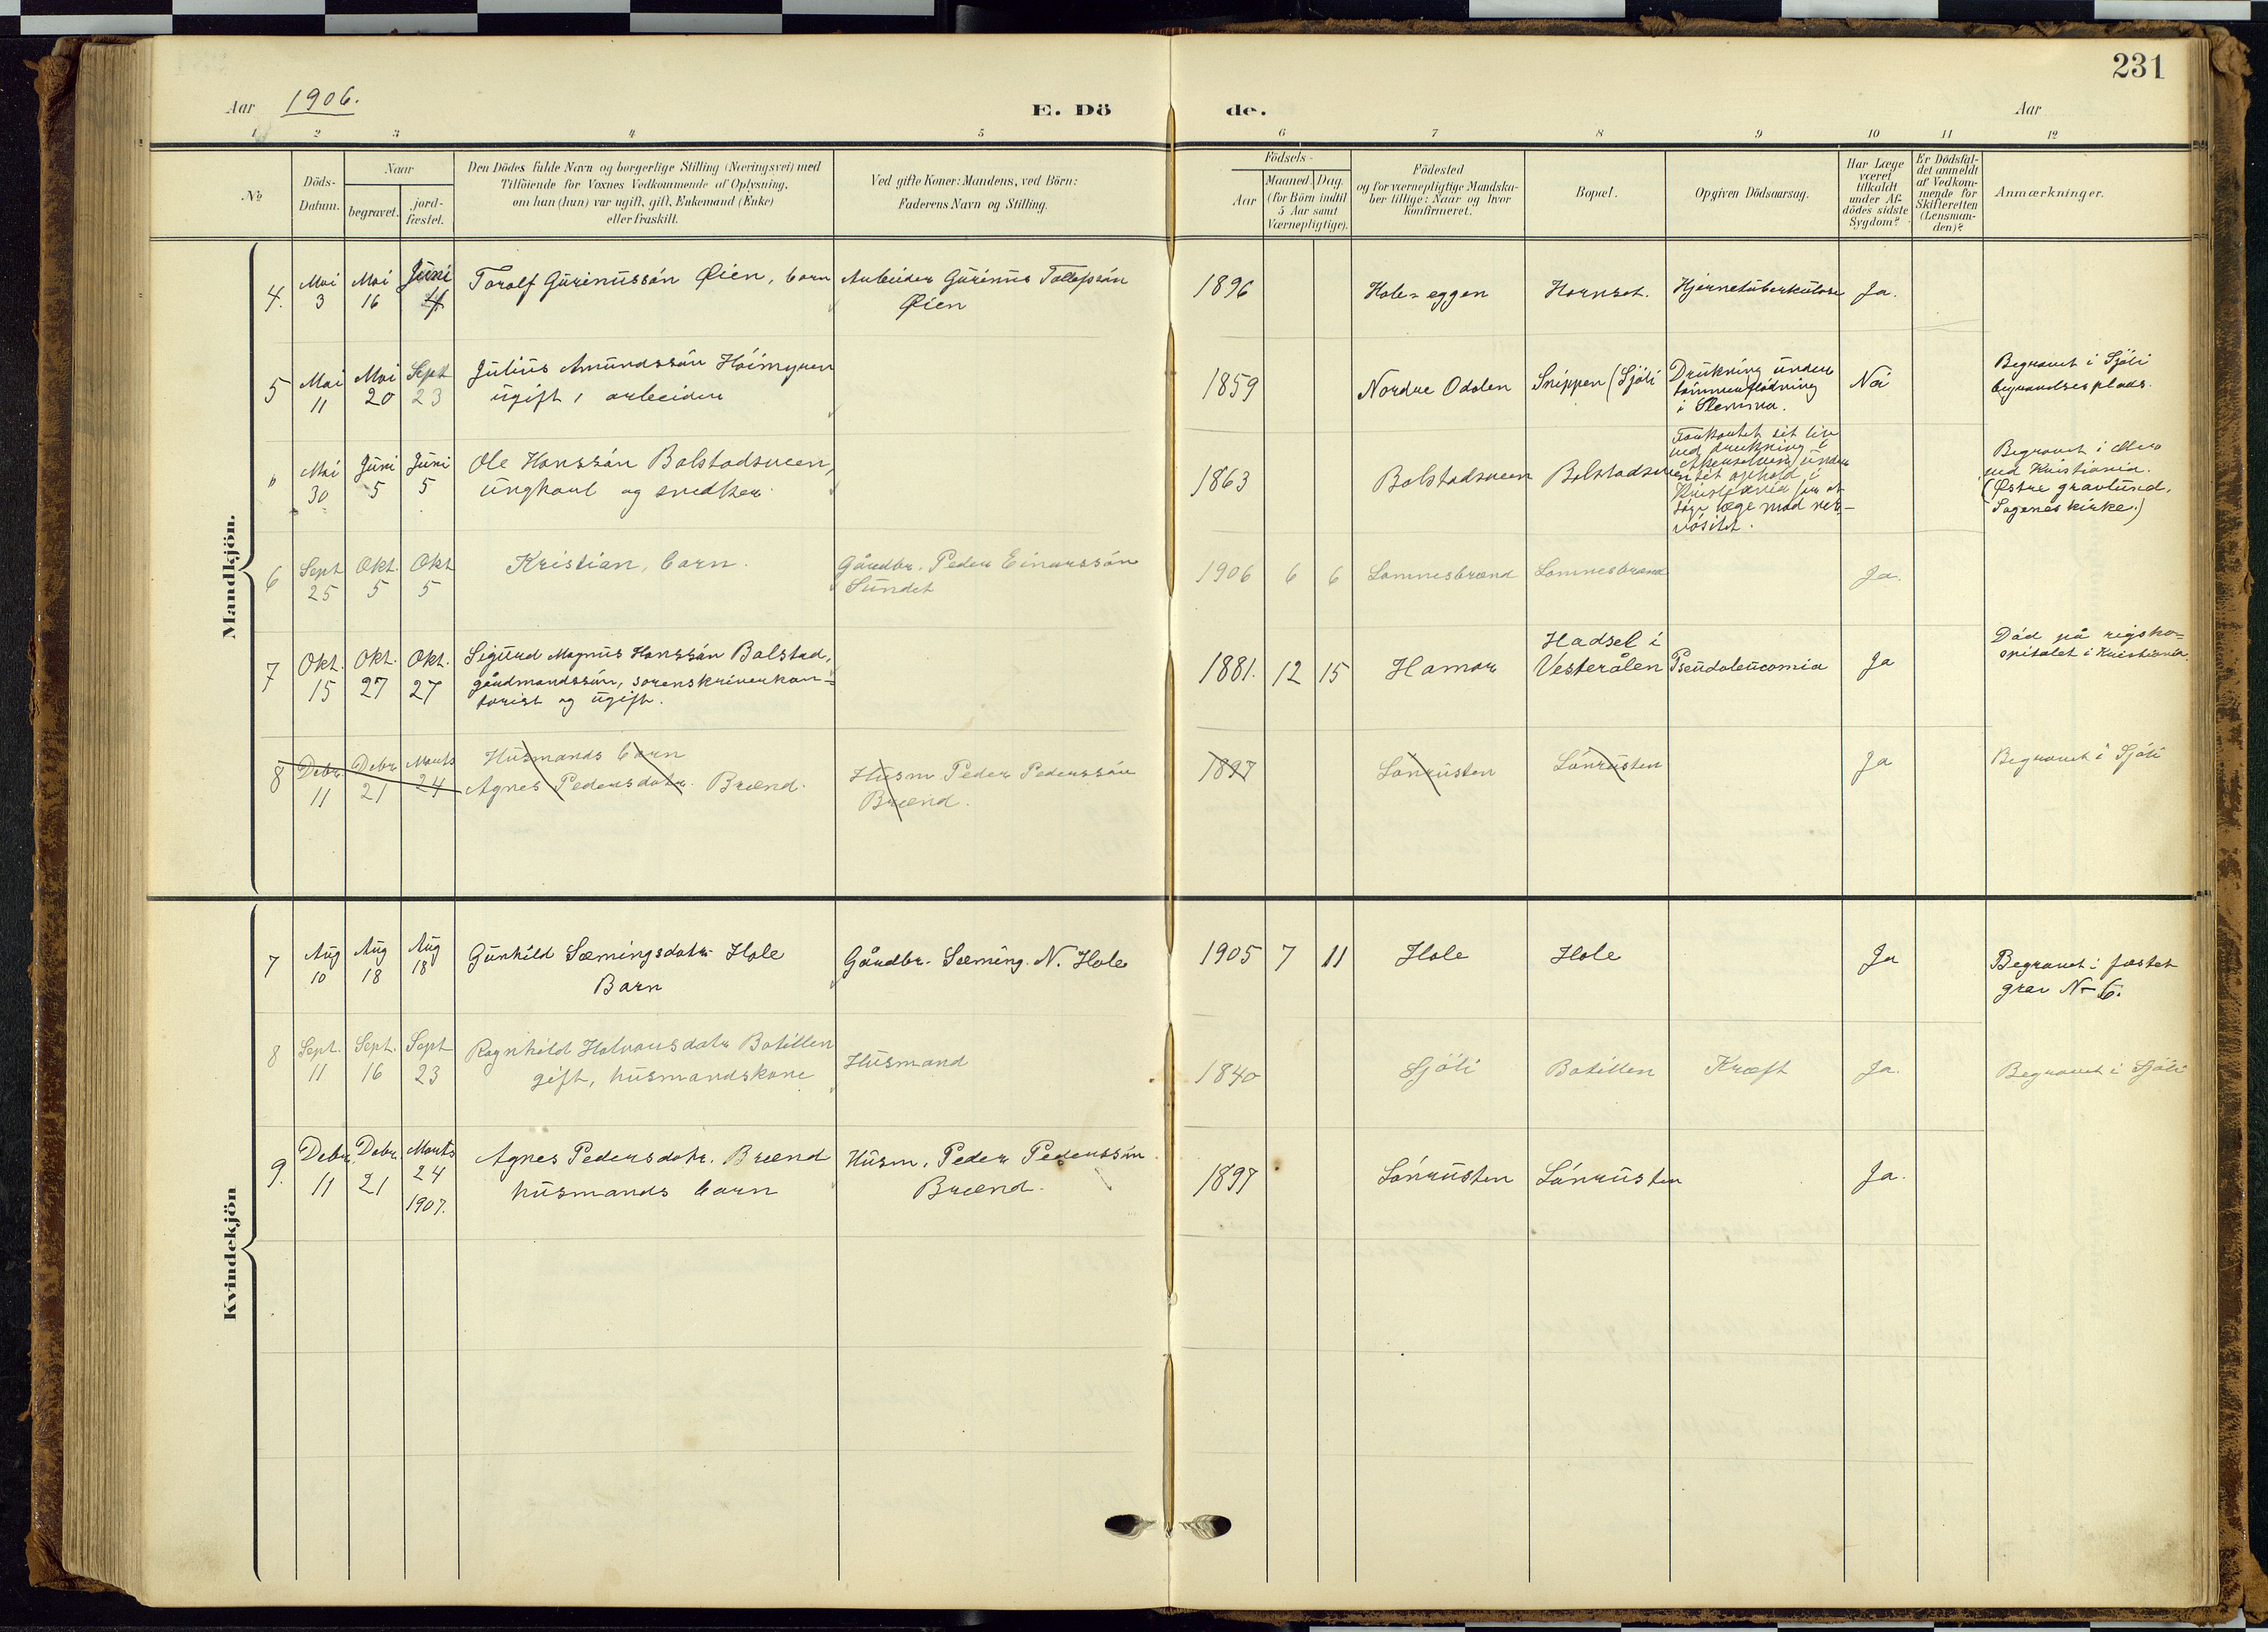 231
Aar 1906.
E. Dö de.
Aar
1 2 3 4 5 6 7 8 9 10 11 12
No
Döds-Datum.
Naar
begravet.
jord-fæstet.
Den Dödes fulde Navn og borgerlige Stilling (Næringsvei) med
Tilföiende for Voxnes Vedkommende af Oplysning,
om han (hun) var ugift, gift, Enkemand (Enke)
eller fraskilt.
Ved gifte Koner: Mandens, ved Börn:
Faderens Navn og Stilling.
Födsels-
Aar
Maaned. Dag.
(for Börn indtil
5 Aar samt
Værnepligtige).
Födested
og for værnepligtige Mandska-
ber tillige: Naar og hvor
konfirmeret.
Bopæl.
Opgiven Dödsaarsag.
Har Læge
været
tilkaldt
under Af-
dödes sidste
Sygdom?
Er Dödsfal-
det anmeldt
af Vedkom-
mende for
Skifteretten
(Lensman-
den)?
Anmærkninger.
Mandkjön.
4. Mai 3 Mai 16 Juni 4 Torolf Gurinussön Øien, barn Arbeider Gurinus Tollefssön Øien 1896 Hole-eggen Hornset. Hjernetuberkulose Ja.
5 Mai 11 Mai 20 Sept 23 Julius Amundssön Höimyren
ugift, arbeider 1859 Nordre Odalen Snippen (Sjöli Drukning under
tömmerflödning
i Renna. Nei Begravet i Sjöli
begravelsesplads.
" Mai 30 Juni 5 Juni 5 Ole Hanssön Bolstadsveen,
ungkarl og snedker 1863 Bolstadsveen Bolstadsveen Forkortet sit liv
ved drukning i
Akerselven under
et sit ophold i
Kristiania for at
söge læge mod ner-
vösitet. Begravet i Aker
ved Kristiania.
(Østre gravlund,
Sagenes kirke.)
6 Sept 25 Okt. 5 Okt 5 Kristian, barn. Gårdbr. Peder Einarssön
Sundet 1906 6 6 Lomnesbrænd Lomnesbrænd Ja.
7 Okt. 15 Okt. 27 Okt. 27 Sigurd Magnus Hanssön Bolstad,
gårdmandssön, sorenskriverkon-
torist og ugift. 1881. 12 15 Hamar Hadsel i
Vesterålen Pseudoleucomia Ja Död på rigsho-
spitalet i Kristiania.
8 Debr 11 Debr 21 Marts 24 Husmands barn
Agnes Pedersdatr. Brænd. Husm Peder Pederssön
Brænd. 1897 Lönrusten Lönrusten Ja Begravet i Sjöli
Kvindekjön
7 Aug 10 Aug 18 Aug 18 Gunhild Sæmingsdatr Hole
Barn Gårdbr. Sæming N. Hole 1905 7 11 Hole Hole Ja Begravet i fæstet
grav No 6.
8 Sept. 11 Sept. 16 Sept 23 Ragnhild Halvorsdatr Botillen
gift, husmandskone Husmand 1840 Sjöli Botillen Kræft Ja. Begravet i Sjöli
9. Debr. 11 Debr. 21 Marts 24 1907. Agnes Pedersdatr. Brænd
husmands barn Husm. Peder Pederssön
Brænd. 1897 Lönrusten Lönrusten Ja.